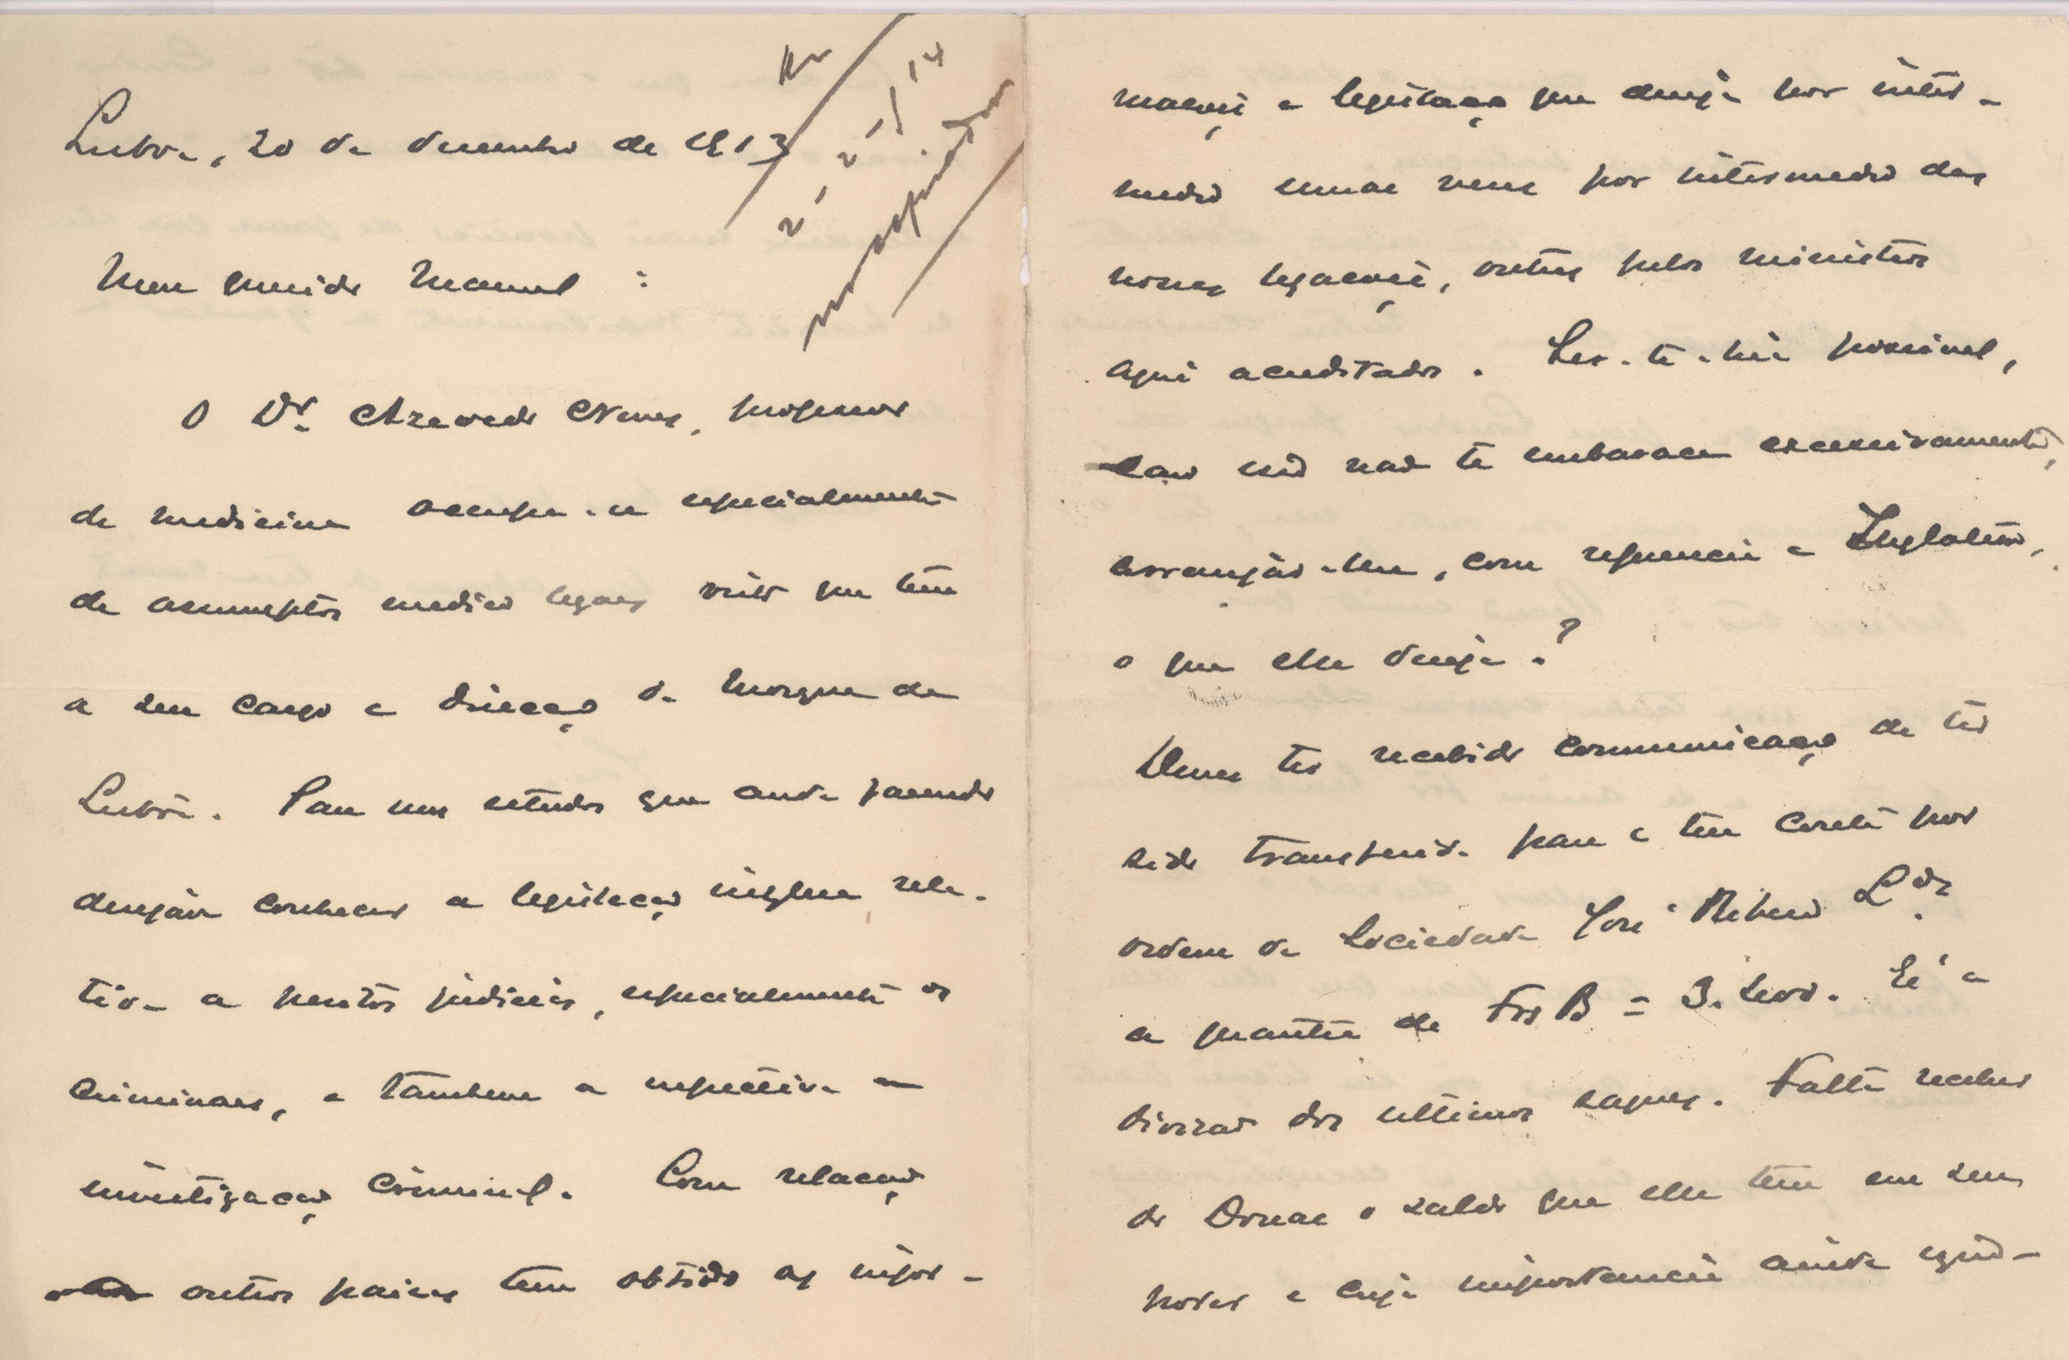 Lisboa, 20 de dezembro de 1913
R
2, 2, / 14
Meu querido Manuel :
O Dr. Azevedo Neves, professor
de medicina occupa-se especialmente
de assumptos medico legaes visto que tem
a seu cargo a direcção da Morgue de
Lisboa. Para uns estudos que anda fazendo
desejava conhecer a legislação ingleza rela-
tiva a peritos judiciaes, especialmente os
criminaes, e tambem a respectiva a
investigação criminal. Com relação
outros paizes tem obtido as infor-
mações e legislação que deseja por inter-
medio umas vezes por intermedio das
nossas legações, outras pelos ministros
aqui acreditados. Ser-te-hia possivel,
caso isso não te embarace excessivamente,
arranjar-lhe, com referencia a Inglaterra,
o que elle deseja?
Deves ter recebido communicação de ter
sido transferida para a tua conta por
ordem da Sociedade José Ribeiro Lda
a quantia de Frs B = 3.
É a
divisão dos ultimos saques. Falta receber
do Ornae o saldo que elle tem em seu
poder e cuja importancia ainda igno-